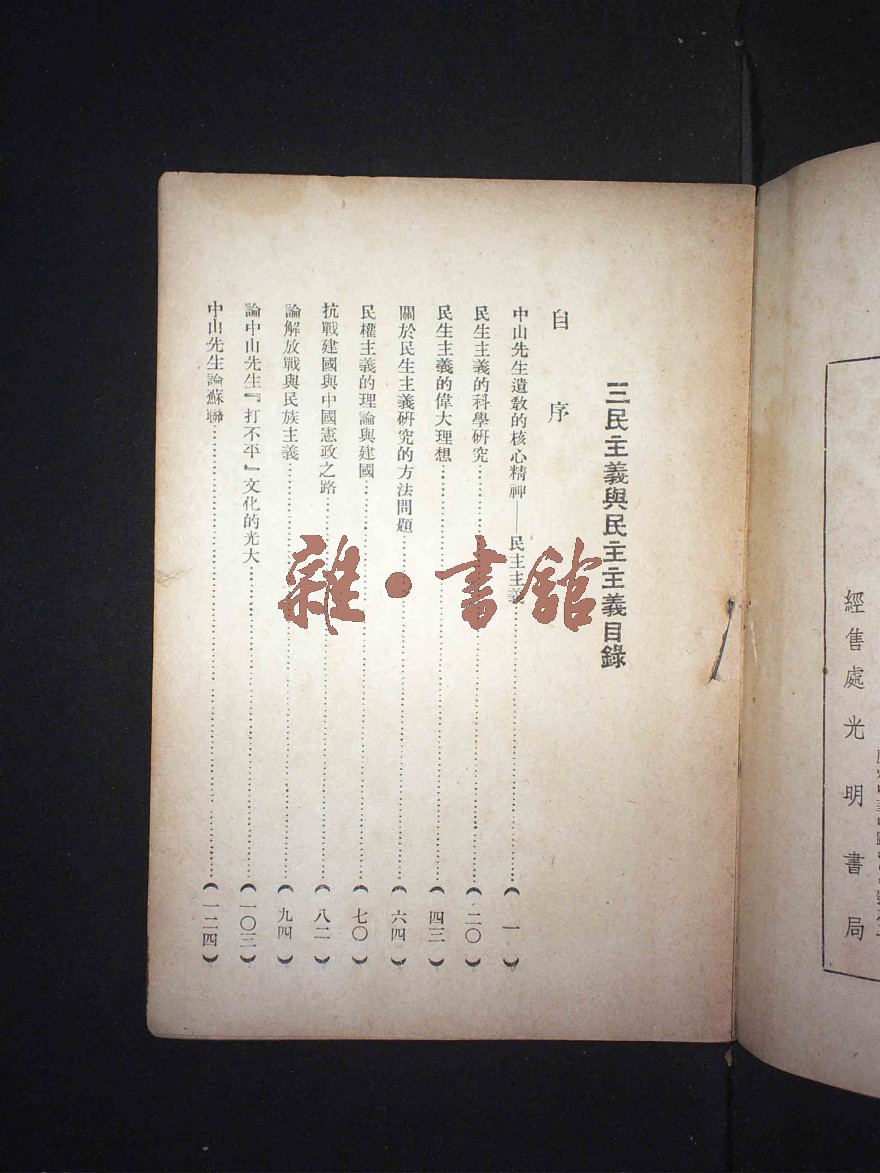 經售處光明書局
三民主義與民主主義目錄
自序
中山先生遺教的核心精神——民主主義…………（一）
民生主義的科學研究…………（二〇）
民生主義的偉大理想…………（四三）
關於民生主義研究的方法問題…………（六四）
民權主義的理論與建國…………（七〇）
抗戰建國與中國憲政之路…………（八二）
論解放戰與民族主義…………（九四）
論中山先生『打不平』文化的光大…………（一〇三）
中山先生論蘇聯…………（一二四）
雜·書館